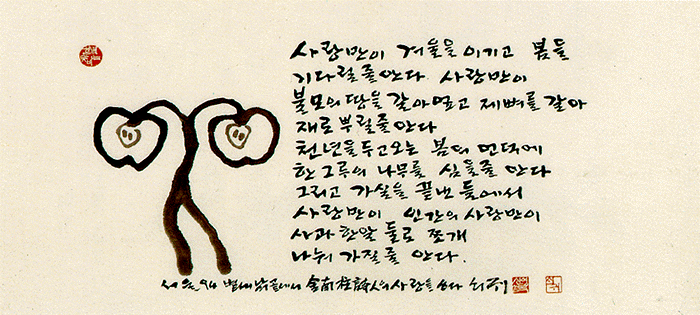 사랑만이 겨울을 이기고 봄을
기다릴줄안다 사랑만이
불모의땅을 갈아엎고 제뼈를 갈아
재로뿌릴줄안다
천년을두고오는 봄의 언덕에
한그루의 나무를 심을줄 안다
그리고 가실을 끝낸 들에서
사랑만이 인간의 사랑만이
사과 한알 둘로 쪼개
나눠 가질줄 안다.
金南柱詩人의 사랑을 쓰다 쇠귀